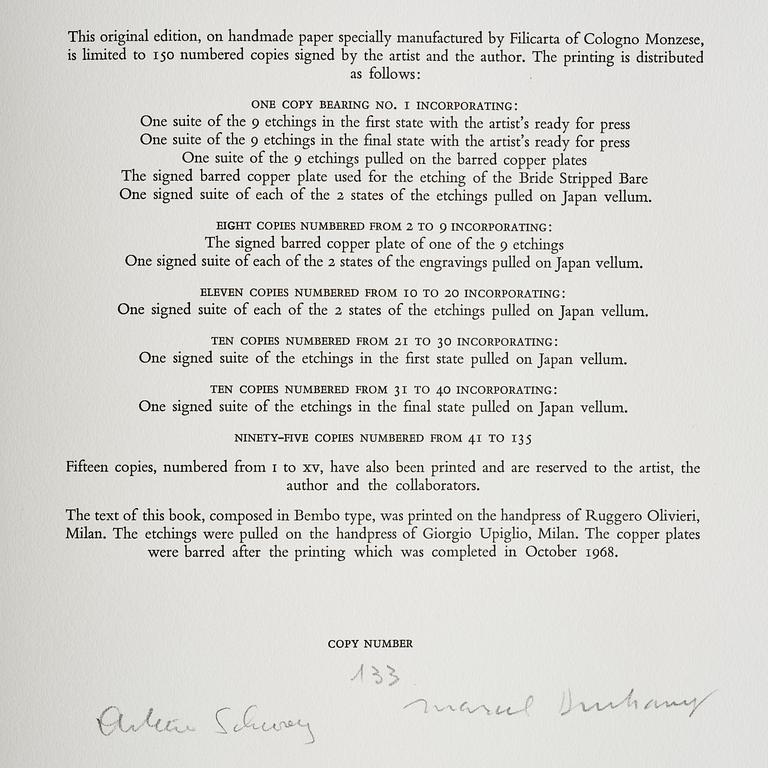 This original edition, on handmade paper specially manufactured by Filicarta of Cologno Monzese,
is limited to 150 numbered copies signed by the artist and the author. The printing is distributed
as follows:
ONE COPY BEARING NO. 1 INCORPORATING:
One suite of the 9 etchings in the first state with the artist's ready for press
One suite of the 9 etchings in the final state with the artist's ready for press
One suite of the 9 etchings pulled on the barred copper plates
The signed barred copper plate used for the etching of the Bride Stripped Bare
One signed suite of each of the 2 states of the etchings pulled on Japan vellum.
EIGHT COPIES NUMBERED FROM 2 TO 9 INCORPORATING:
The signed barred copper plate of one of the 9 etchings
One signed suite of each of the 2 states of the engravings pulled on Japan vellum.
ELEVEN COPIES NUMBERED FROM 10 TO 20 INCORPORATING:
One signed suite of each of the 2 states of the etchings pulled on Japan vellum.
TEN COPIES NUMBERED FROM 21 TO 30 INCORPORATING:
One signed suite of the etchings in the first state pulled on Japan vellum.
TEN COPIES NUMBERED FROM 31 TO 40 INCORPORATING:
One signed suite of the etchings in the final state pulled on Japan vellum.
NINETY-FIVE COPIES NUMBERED FROM 41 TO 135
Fifteen copies, numbered from I to XV, have also been printed and are reserved to the artist, the
author and the collaborators.
The text of this book, composed in Bembo type, was printed on the handpress of Ruggero Olivieri,
Milan. The etchings were pulled on the handpress of Giorgio Upiglio, Milan. The copper plates
were barred after the printing which was completed in October 1968.
COPY NUMBER
133
Arturo Schwarz Marcel Duchamp